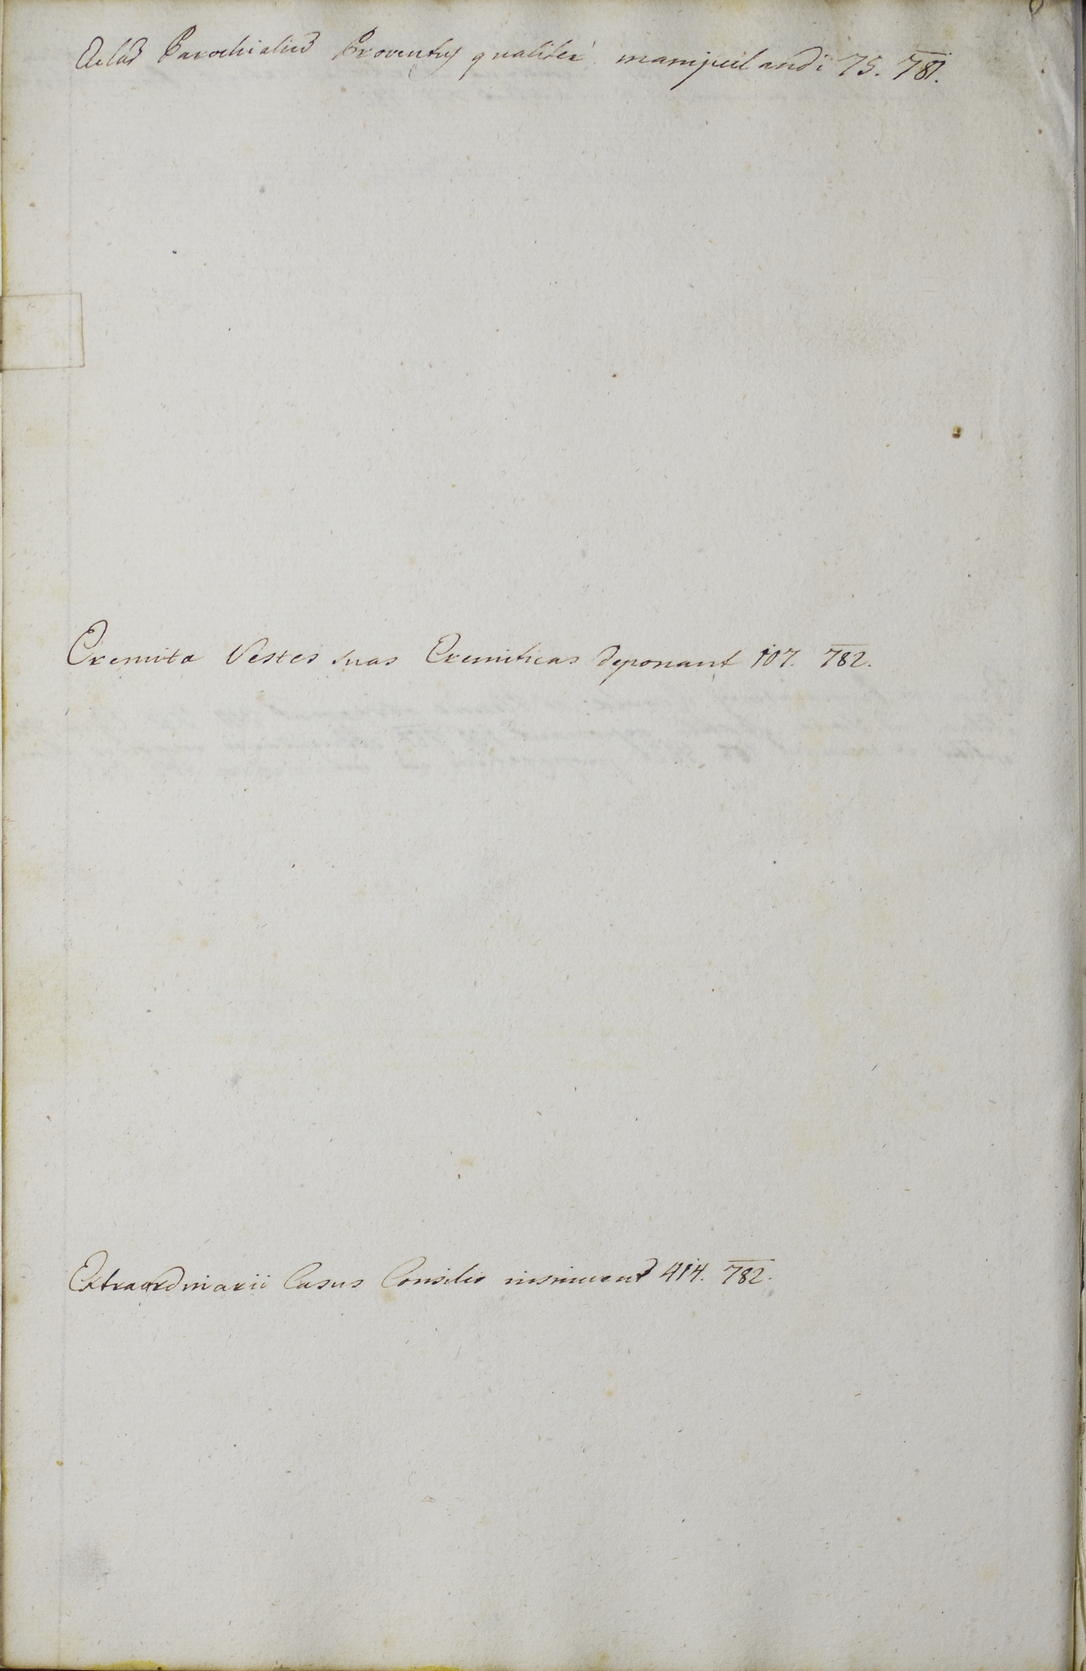 Parochialis Proventus qualiter manipulandi 75. 781.
Eremitæ Vestes suas Eremiticas deponant 107. 782.
Extraordinarii Casus Consilio insinuent 414. 782.